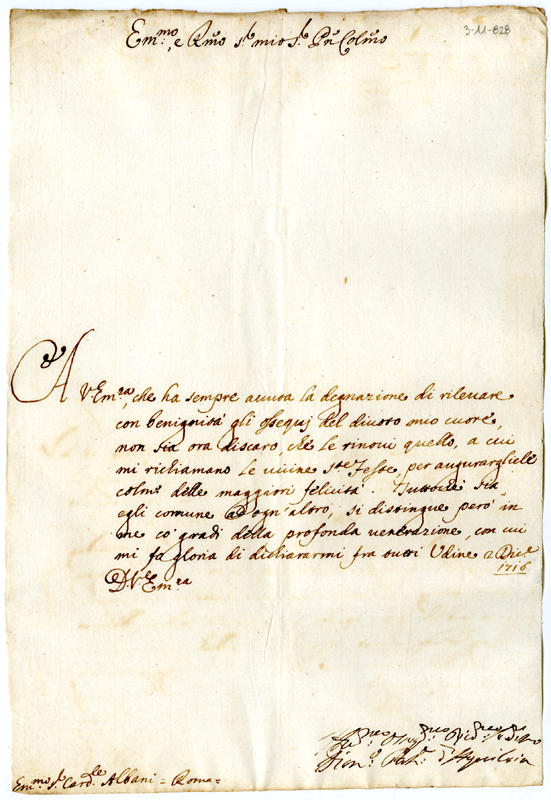 3-11-828
Em.mo e R.mo S.r mio S.r P.n Col.mo
A V.Em.za, che ha sempre avuta la degnazione di rilevare
con benignità gli ossequj del divoto mio cuore,
non sia ora discaro, che le rinovi quello, a cui
mi richiamano le vicine S.te Feste, per augurargliele
colme delle maggiori felicità. Tuttoche sia
egli comune ad ogn'altro, si distingue però in
me co' gradi della profonda venerazione, con cui
mi fo gloria di dichiararmi fra tutti Udine 2 Dic.e
1716
D V.Em.za
Dion.o Pat.a d'Aquileia
Em.mo S.r Card.le Albani = Roma =